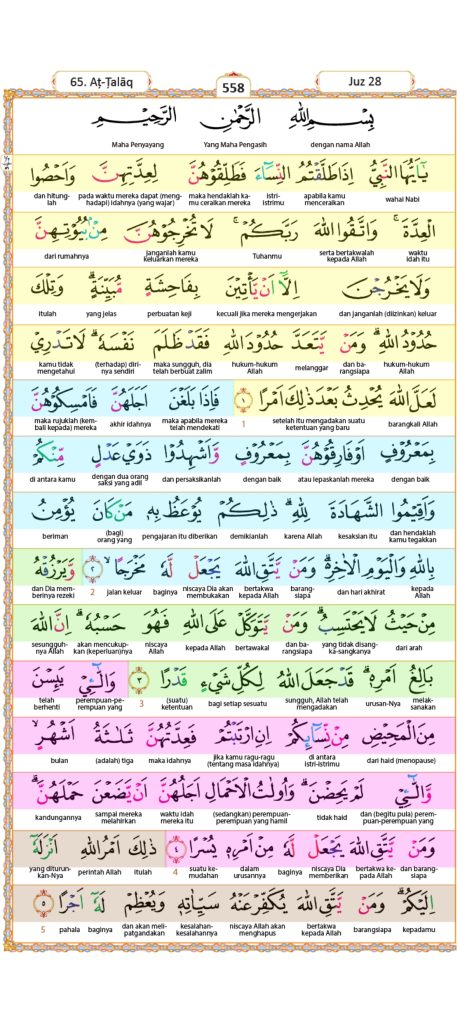 65. Aṭ-Ṭalāq
558
Juz 28
بِسْمِ اللّٰهِ الرَّحْمٰنِ الرَّحِيْمِ
dengan nama Allah Yang Maha Pengasih Maha Penyayang
يٰٓاَيُّهَا النَّبِيُّ اِذَا طَلَّقْتُمُ النِّسَاۤءَ فَطَلِّقُوْهُنَّ لِعِدَّتِهِنَّ وَاَحْصُوا
wahai Nabi apabila kamu menceraikan istri-istrimu maka hendaklah kamu ceraikan mereka pada waktu mereka dapat (menghadapi) idahnya (yang wajar) dan hitunglah
الْعِدَّةَۚ وَاتَّقُوا اللّٰهَ رَبَّكُمْۚ لَا تُخْرِجُوْهُنَّ مِنْۢ بُيُوْتِهِنَّ
waktu idah itu serta bertakwalah kepada Allah Tuhanmu janganlah kamu keluarkan mereka dari rumahnya
وَلَا يَخْرُجْنَ اِلَّآ اَنْ يَّأْتِيْنَ بِفَاحِشَةٍ مُّبَيِّنَةٍۗ وَتِلْكَ
dan janganlah (diizinkan) keluar kecuali jika mereka mengerjakan perbuatan keji yang jelas itulah
حُدُوْدُ اللّٰهِۗ وَمَنْ يَّتَعَدَّ حُدُوْدَ اللّٰهِ فَقَدْ ظَلَمَ نَفْسَهٗۗ لَا تَدْرِيْ
hukum-hukum Allah dan barangsiapa melanggar hukum-hukum Allah maka sungguh, dia telah berbuat zalim (terhadap) dirinya sendiri kamu tidak mengetahui
لَعَلَّ اللّٰهَ يُحْدِثُ بَعْدَ ذٰلِكَ اَمْرًا ١ فَاِذَا بَلَغْنَ اَجَلَهُنَّ فَاَمْسِكُوْهُنَّ
barangkali Allah setelah itu mengadakan suatu ketentuan yang baru 1 maka apabila mereka telah mendekati akhir idahnya maka rujuklah (kembali kepada) mereka
بِمَعْرُوْفٍ اَوْ فَارِقُوْهُنَّ بِمَعْرُوْفٍ وَّاَشْهِدُوْا ذَوَيْ عَدْلٍ مِّنْكُمْ
dengan baik atau lepaskanlah mereka dengan baik dan persaksikanlah dengan dua orang saksi yang adil di antara kamu
وَاَقِيْمُوا الشَّهَادَةَ لِلّٰهِۗ ذٰلِكُمْ يُوْعَظُ بِهٖ مَنْ كَانَ يُؤْمِنُ
dan hendaklah kamu tegakkan kesaksian itu karena Allah demikianlah pengajaran itu diberikan (bagi) orang yang beriman
بِاللّٰهِ وَالْيَوْمِ الْاٰخِرِۗ وَمَنْ يَّتَّقِ اللّٰهَ يَجْعَلْ لَّهٗ مَخْرَجًا ٢ وَّيَرْزُقْهُ
kepada Allah dan hari akhirat barangsiapa bertakwa kepada Allah niscaya Dia akan membukakan baginya jalan keluar 2 dan Dia memberinya rezeki
مِنْ حَيْثُ لَا يَحْتَسِبُۗ وَمَنْ يَّتَوَكَّلْ عَلَى اللّٰهِ فَهُوَ حَسْبُهٗۗ اِنَّ اللّٰهَ
dari arah yang tidak disangka-sangkanya dan barangsiapa bertawakal kepada Allah niscaya Allah akan mencukupkan (keperluan)nya sesungguhnya Allah
بَالِغُ اَمْرِهٖۗ قَدْ جَعَلَ اللّٰهُ لِكُلِّ شَيْءٍ قَدْرًا ٣ وَالّٰۤـِٔيْ يَىِٕسْنَ
melaksanakan urusan-Nya sungguh, Allah telah mengadakan bagi setiap sesuatu (suatu) ketentuan 3 perempuan-perempuan yang telah berhenti
مِنَ الْمَحِيْضِ مِنْ نِّسَاۤىِٕكُمْ اِنِ ارْتَبْتُمْ فَعِدَّتُهُنَّ ثَلٰثَةُ اَشْهُرٍۙ
dari haid (menopause) di antara istri-istrimu jika kamu ragu-ragu (tentang masa idahnya) maka idahnya (adalah) tiga bulan
وَّالّٰۤـِٔيْ لَمْ يَحِضْنَۗ وَاُولَاتُ الْاَحْمَالِ اَجَلُهُنَّ اَنْ يَّضَعْنَ حَمْلَهُنَّۗ
dan (begitu pula) perempuan-perempuan yang tidak haid (sedangkan) perempuan-perempuan yang hamil waktu idah mereka itu sampai mereka melahirkan kandungannya
وَمَنْ يَّتَّقِ اللّٰهَ يَجْعَلْ لَّهٗ مِنْ اَمْرِهٖ يُسْرًا ٤ ذٰلِكَ اَمْرُ اللّٰهِ اَنْزَلَهٗٓ
dan barangsiapa bertakwa kepada Allah niscaya Dia memberikan baginya dalam urusannya suatu kemudahan 4 itulah perintah Allah yang diturunkan-Nya
اِلَيْكُمْۗ وَمَنْ يَّتَّقِ اللّٰهَ يُكَفِّرْ عَنْهُ سَيِّاٰتِهٖ وَيُعْظِمْ لَهٗٓ اَجْرًا ٥
kepadamu barangsiapa bertakwa kepada Allah niscaya Allah akan menghapus kesalahan-kesalahannya dan akan melipatgandakan baginya pahala 5